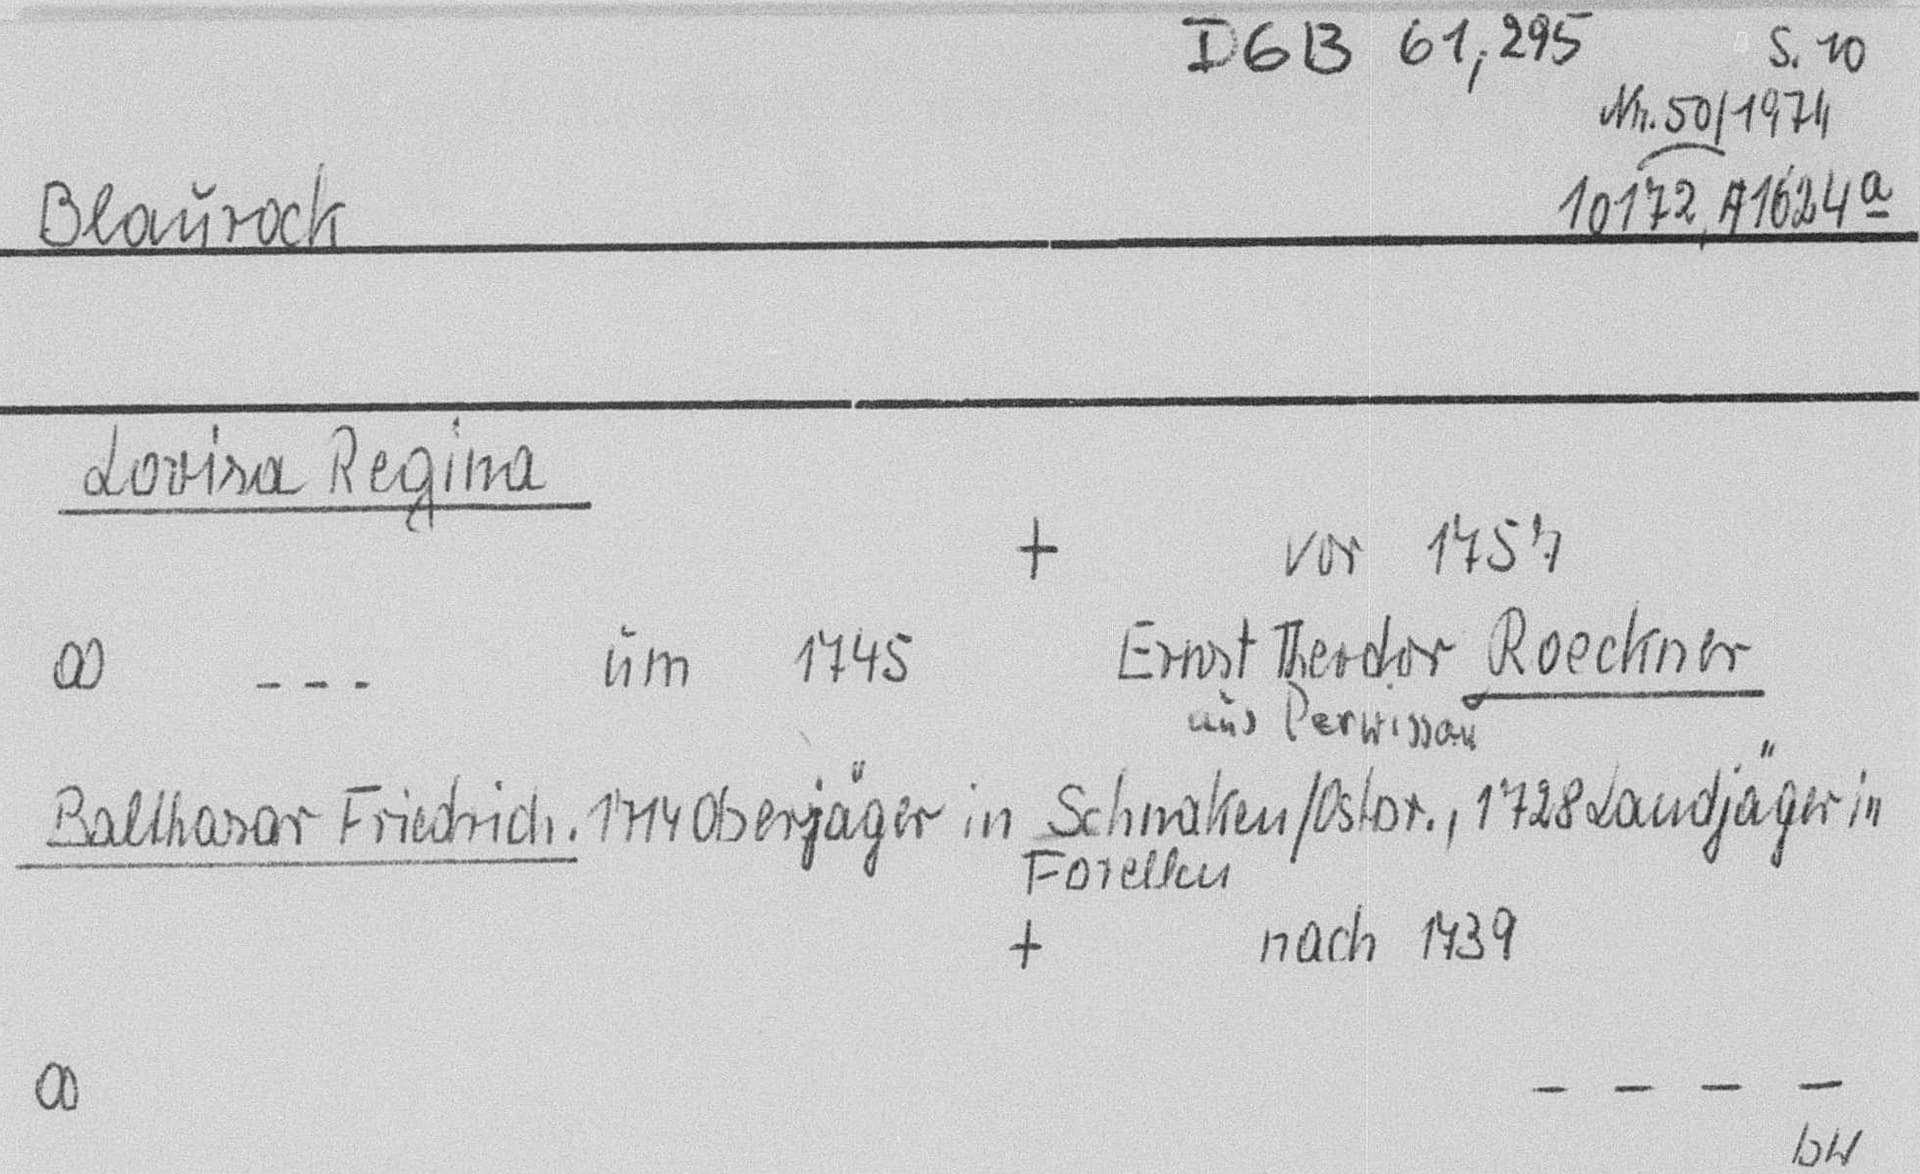 DGB 61,295 S. 10
Nr. 50/1974
Blaurock 10172, A1624a
Lovisa Regina
+ vor 1757
∞ --- um 1745 Ernst Theodor Roeckner
aus Perwissau
Balthasar Friedrich. 1714 Oberjäger in Schnaken/Ostpr., 1728 Landjäger in
Forellen
+ nach 1739
∞ ----